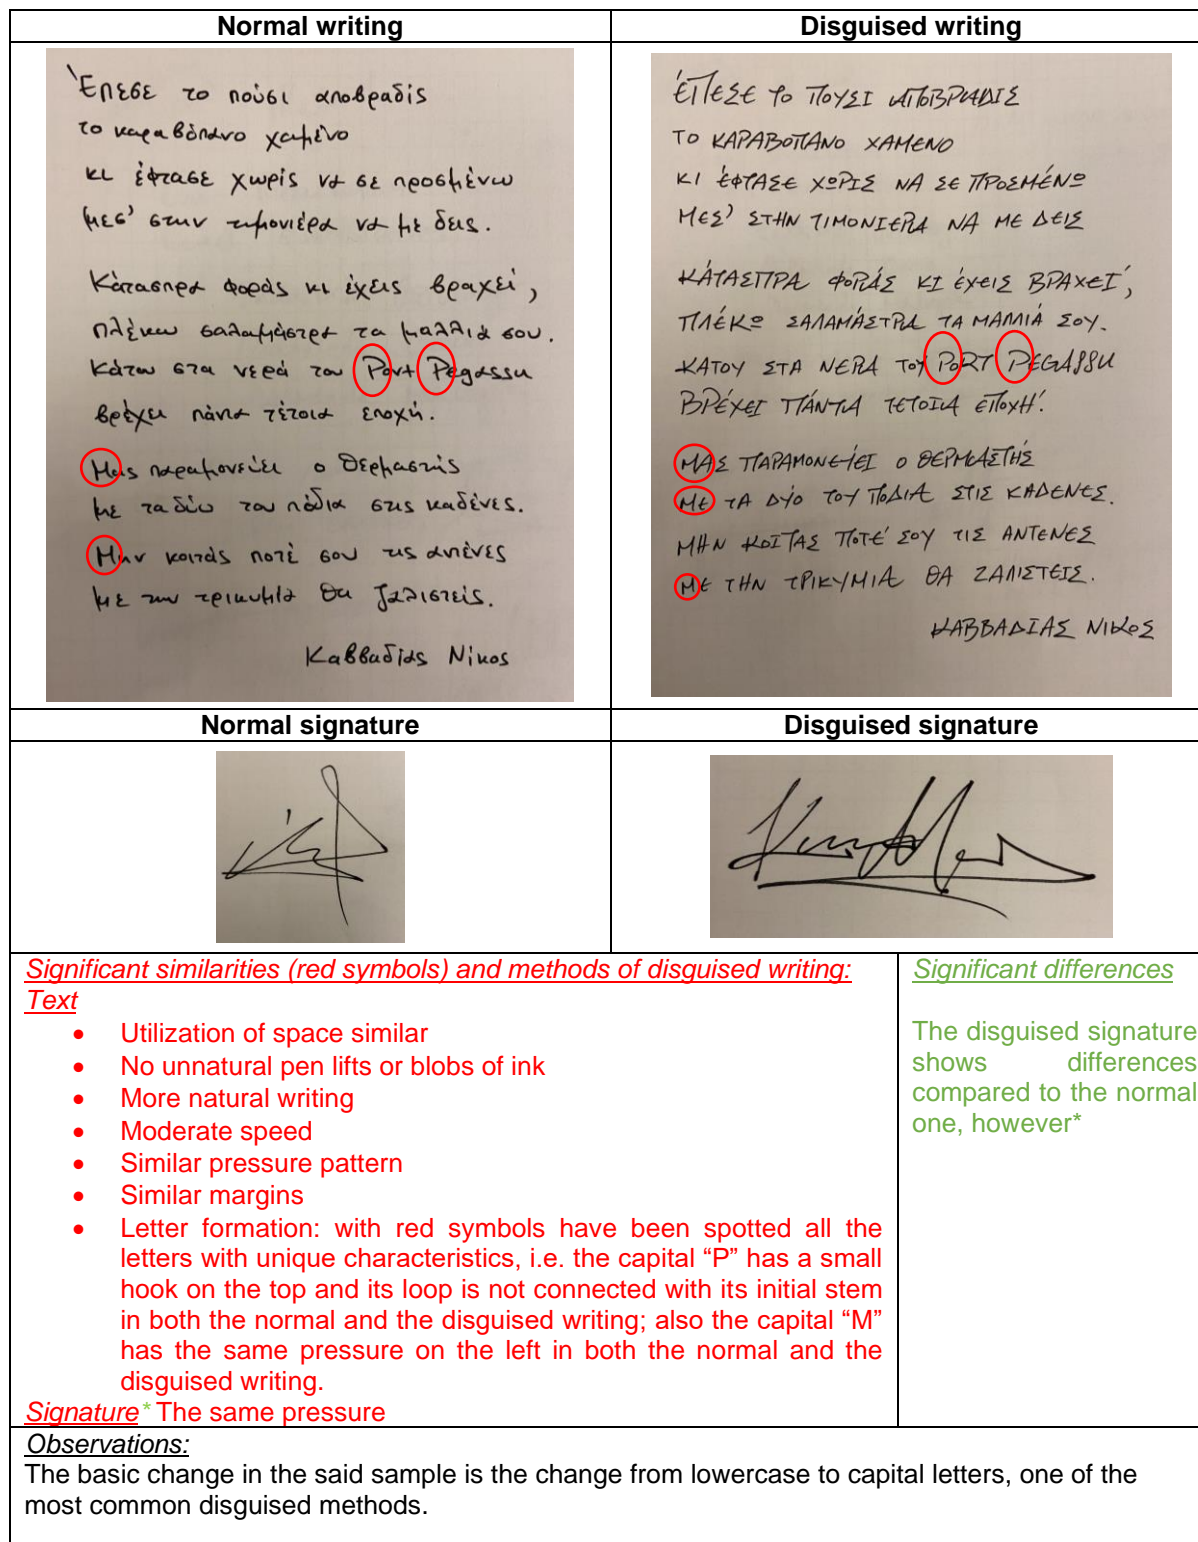 Normal writing
Disguised writing
Έπεσε το πούσι αποβραδίς
το καραβόπανο χαμένο
κι έφτασε χωρίς να σε προσμένω
μεσ' στην τιμονιέρα να με δεις.
Κάτασπρα φοράς κι έχεις βραχεί,
πλέκω σαλαμάστρα τα μαλλιά σου.
Κάτου στα νερά του Port Pegassu
βρέχει πάντα τέτοια εποχή.
Μας παραμονεύει ο θερμαστής
με τα δύο του πόδια στις καδένες.
Μην κοιτάς ποτέ σου τις αντένες
με την τρικυμία θα ζαλιστείς.
Καββαδίας Νίκος
ΈΠΕΣΕ ΤΟ ΠΟΥΣΙ ΑΠΟΒΡΑΔΙΣ
ΤΟ ΚΑΡΑΒΟΠΑΝΟ ΧΑΜΕΝΟ
ΚΙ ΈΦΤΑΣΕ ΧΩΡΙΣ ΝΑ ΣΕ ΠΡΟΣΜΈΝΩ
ΜΕΣ' ΣΤΗΝ ΤΙΜΟΝΙΕΡΑ ΝΑ ΜΕ ΔΕΙΣ
ΚΆΤΑΣΠΡΑ ΦΟΡΆΣ ΚΙ ΈΧΕΙΣ ΒΡΑΧΕΊ,
ΠΛΈΚΩ ΣΑΛΑΜΆΣΤΡΑ ΤΑ ΜΑΛΛΙΆ ΣΟΥ.
ΚΑΤΟΥ ΣΤΑ ΝΕΡΑ ΤΟΥ PORT PEGASSU
ΒΡΈΧΕΙ ΠΆΝΤΑ ΤΕΤΟΙΑ ΕΠΟΧΉ.
ΜΑΣ ΠΑΡΑΜΟΝΕΥΕΙ Ο ΘΕΡΜΑΣΤΉΣ
ΜΕ ΤΑ ΔΥΟ ΤΟΥ ΠΟΔΙΑ ΣΤΙΣ ΚΑΔΕΝΕΣ.
ΜΗΝ ΚΟΙΤΑΣ ΠΟΤΈ ΣΟΥ ΤΙΣ ΑΝΤΕΝΕΣ
ΜΕ ΤΗΝ ΤΡΙΚΥΜΙΑ ΘΑ ΖΑΛΙΣΤΕΙΣ.
ΚΑΒΒΑΔΙΑΣ ΝΙΚΟΣ
Normal signature
Disguised signature
Significant similarities (red symbols) and methods of disguised writing:
Text
• Utilization of space similar
• No unnatural pen lifts or blobs of ink
• More natural writing
• Moderate speed
• Similar pressure pattern
• Similar margins
• Letter formation: with red symbols have been spotted all the
letters with unique characteristics, i.e. the capital “P” has a small
hook on the top and its loop is not connected with its initial stem
in both the normal and the disguised writing; also the capital “M”
has the same pressure on the left in both the normal and the
disguised writing.
Signature* The same pressure
Significant differences
The disguised signature
shows differences
compared to the normal
one, however*
Observations:
The basic change in the said sample is the change from lowercase to capital letters, one of the
most common disguised methods.